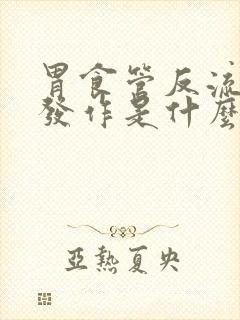 胃食管反流
發作是什麼
亞熱夏央